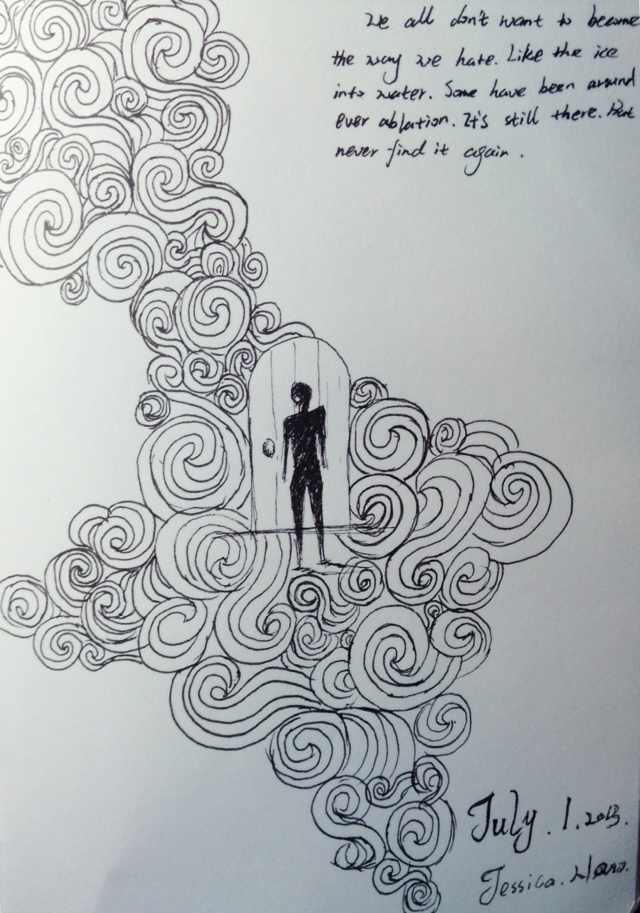 We all don't want to become
the way we hate. Like the ice
into water. Some have been around
ever ablation. It's still there. But
never find it again.
July. 1. 2013.
Jessica.